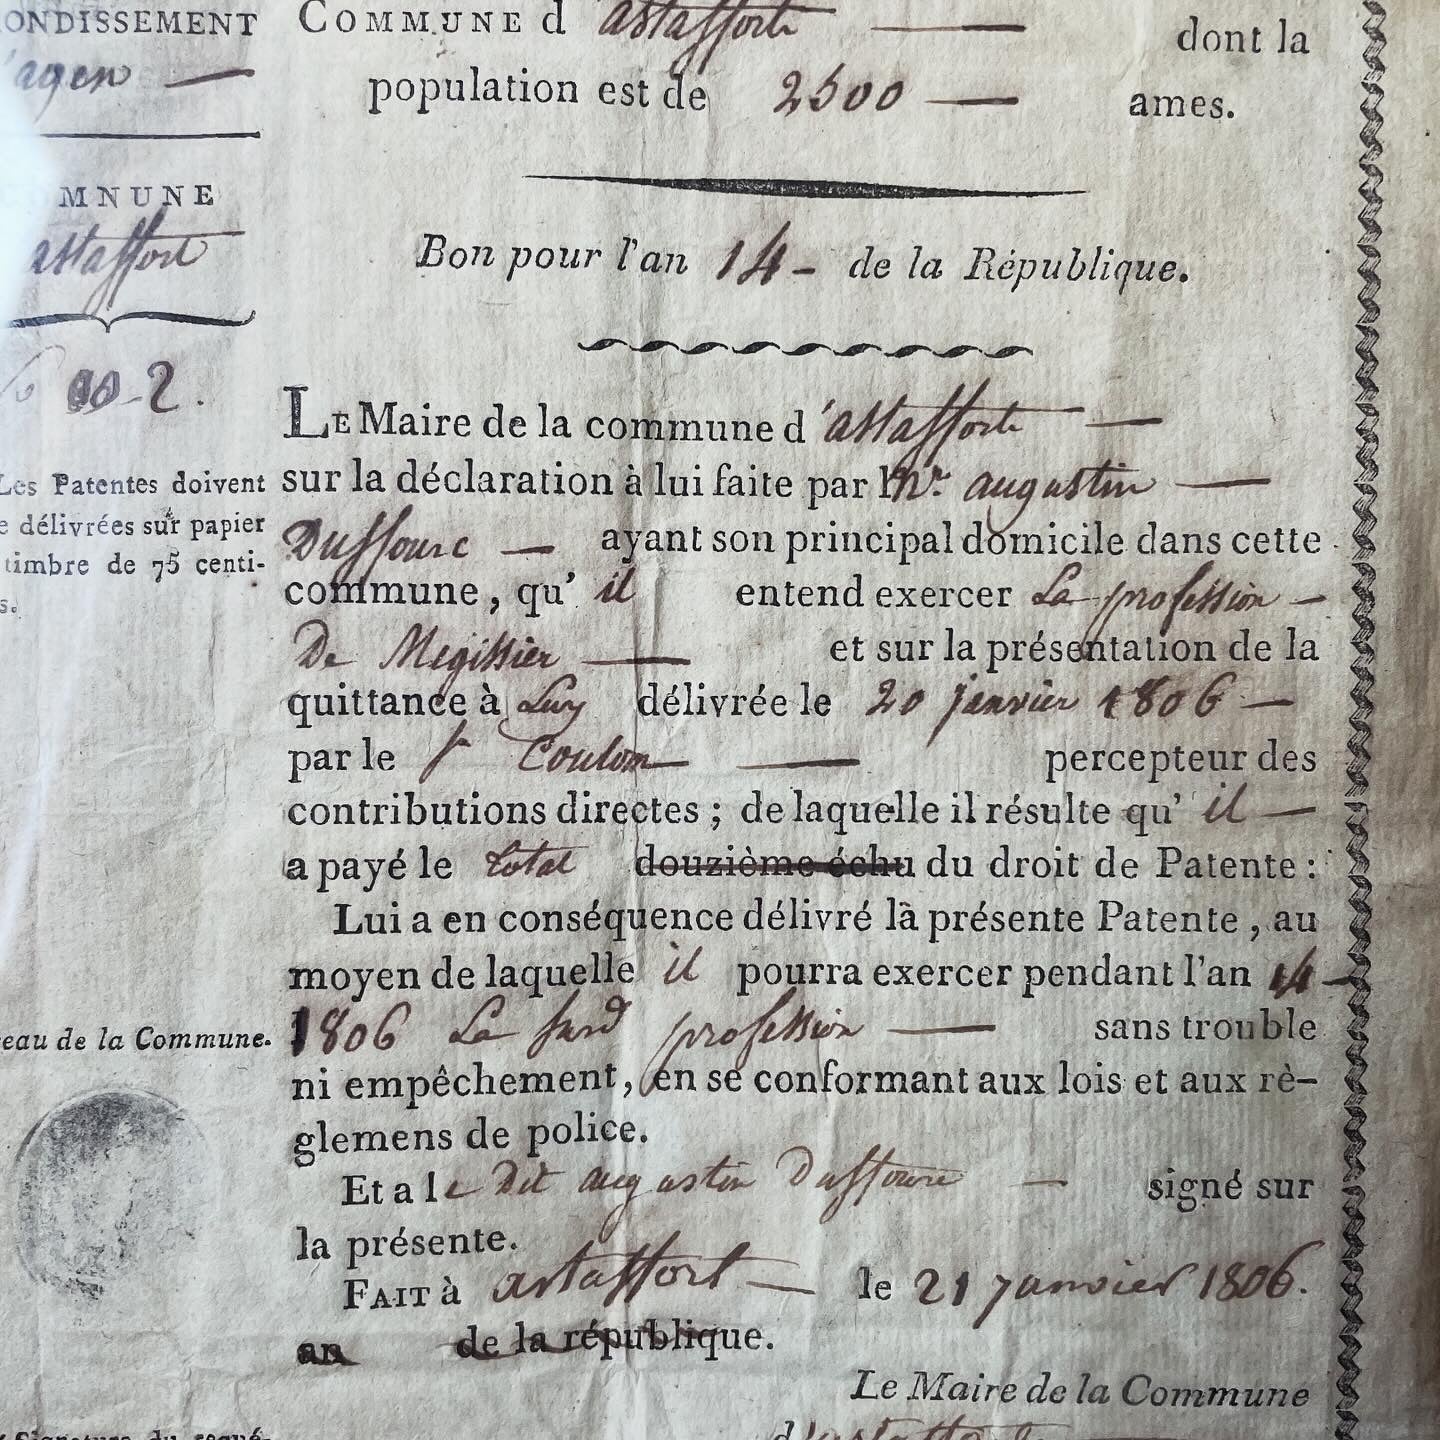 ONDISSEMENT
agen
OMNUNE
astaffort
2.
Les Patentes doivent
e délivrées sur papier
timbre de 75 centi-
s.
eau de la Commune.
COMMUNE d astafforte dont la
population est de 2500 ames.
Bon pour l'an 14 de la République.
LE Maire de la commune d'astafforte
sur la déclaration à lui faite par Mr. augustin
Duffourc ayant son principal domicile dans cette
commune, qu' il entend exercer La profession
De Megissier et sur la présentation de la
quittance à Luy délivrée le 20 janvier 1806
par le Sr Coulom percepteur des
contributions directes ; de laquelle il résulte qu' il
a payé le total douzième échu du droit de Patente :
Lui a en conséquence délivré la présente Patente, au
moyen de laquelle il pourra exercer pendant l'an 14
1806 La susd profession sans trouble
ni empêchement, en se conformant aux lois et aux rè-
glemens de police.
Et a le Dit augustin Duffourc signé sur
la présente.
FAIT à astaffort le 21 janvier 1806.
an de la république.
Le Maire de la Commune